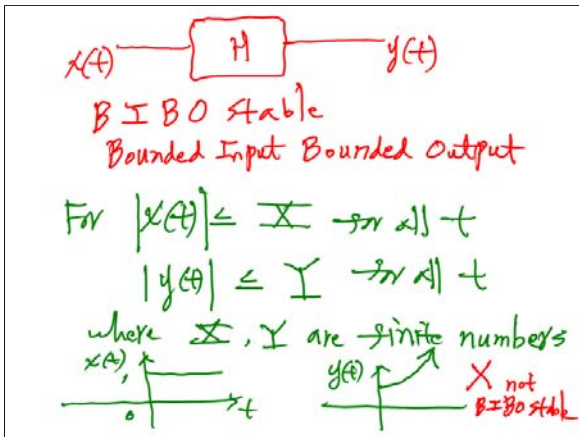 x(t) H y(t)
BIBO stable
Bounded Input Bounded Output
For |x(t)| ≤ X for all t
|y(t)| ≤ Y for all t
where X, Y are finite numbers
x(t) 1 0 t
y(t) X not
BIBO stable